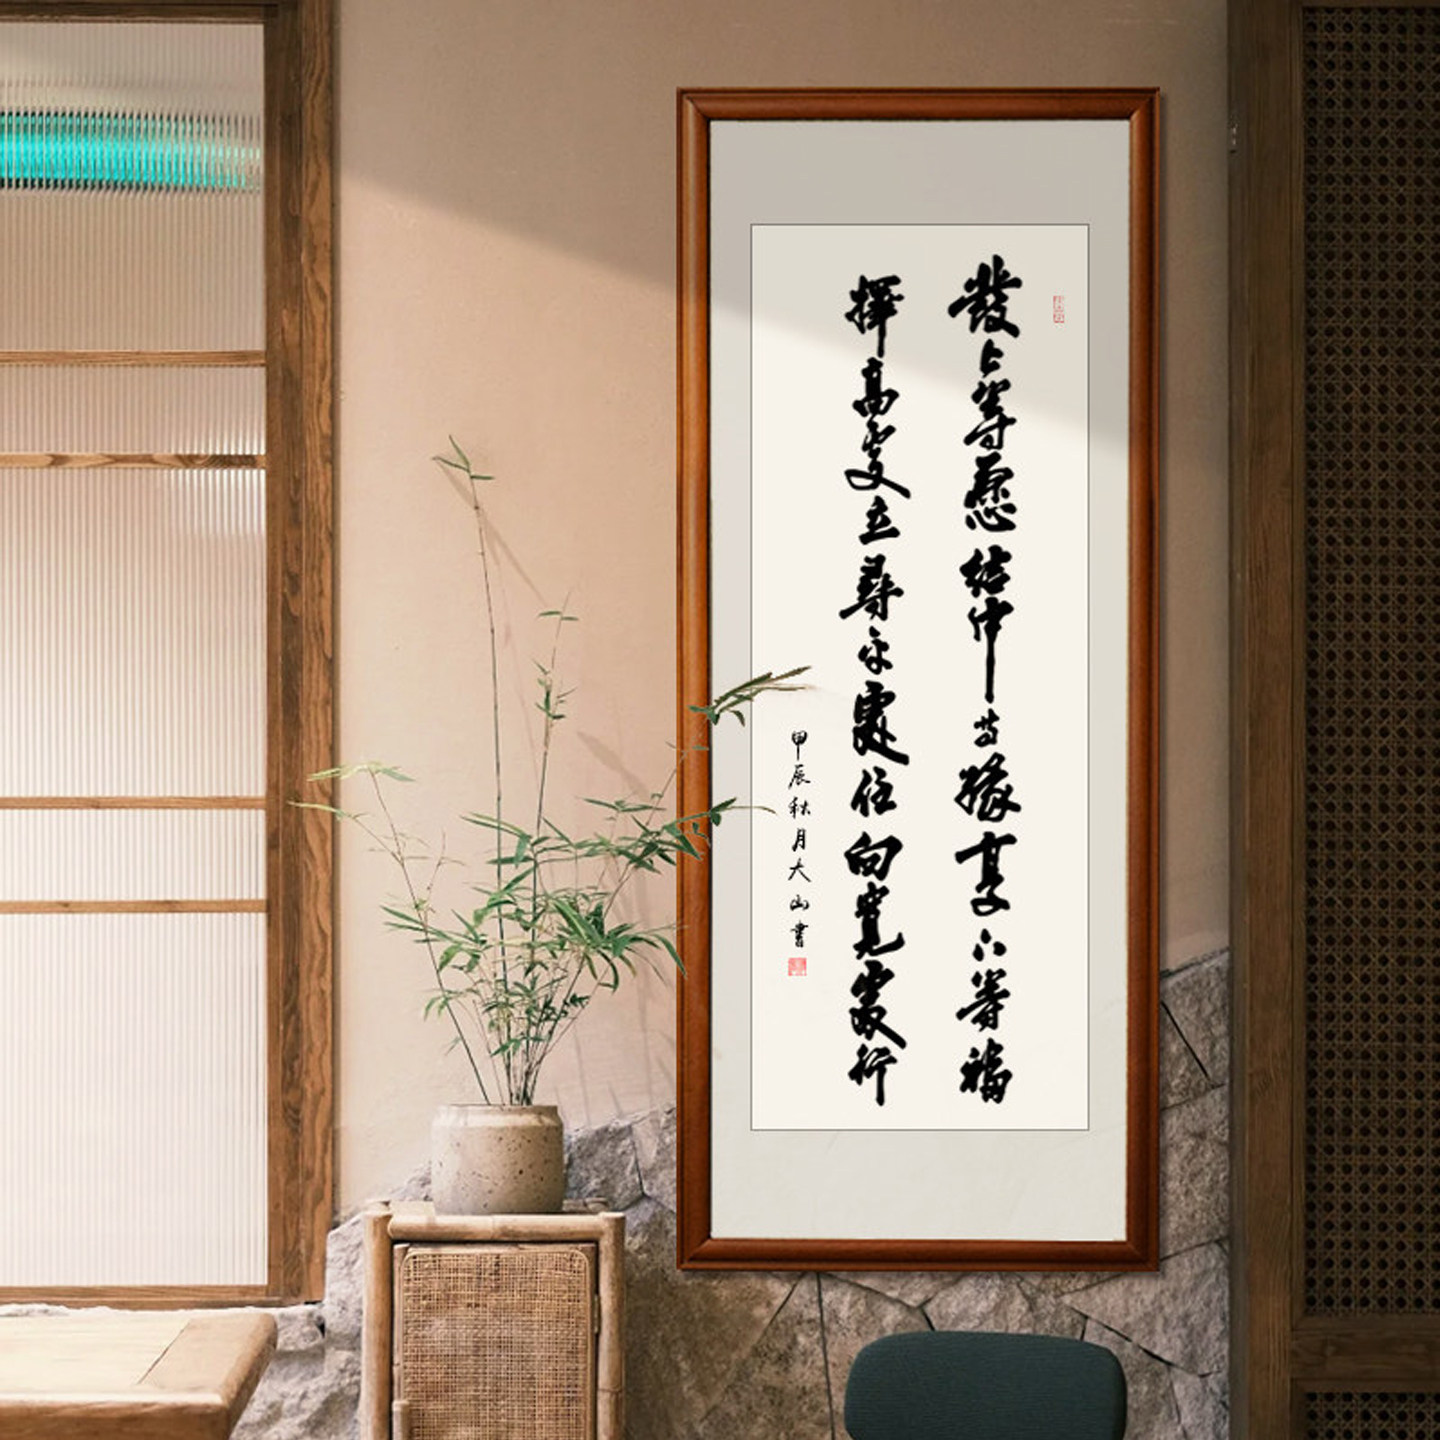 發上等愿結中等緣享下等福
擇高處立尋平處住向寬處行
甲辰秋月大山書